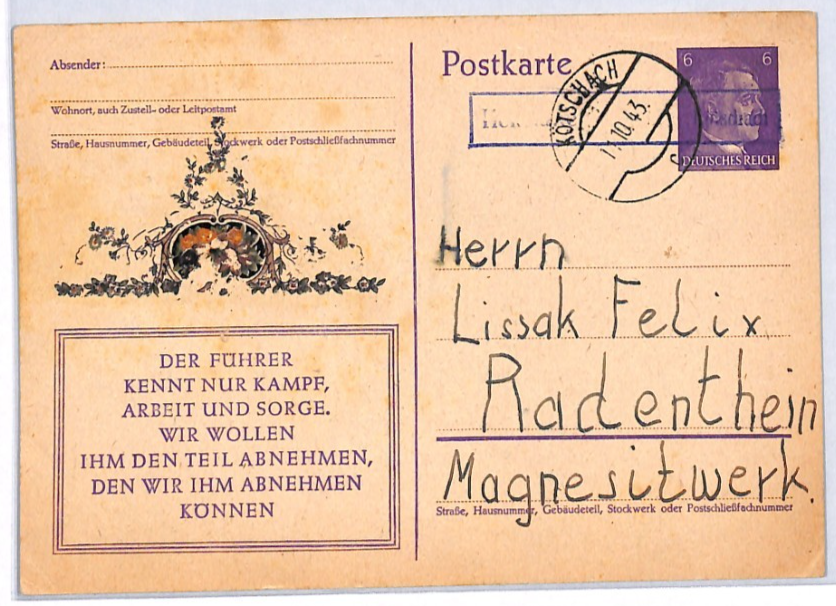 Absender:
Wohnort, auch Zustell- oder Leitpostamt
Straße, Hausnummer, Gebäudeteil, Stockwerk oder Postschließfachnummer
DER FÜHRER
KENNT NUR KAMPF,
ARBEIT UND SORGE.
WIR WOLLEN
IHM DEN TEIL ABNEHMEN,
DEN WIR IHM ABNEHMEN
KÖNNEN
Postkarte
KÖTSCHACH
11.10.43.
6 6
DEUTSCHES REICH
Herrn
Lissak Felix
Radenthein
Magnesitwerk.
Straße, Hausnummer, Gebäudeteil, Stockwerk oder Postschließfachnummer